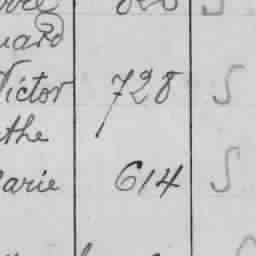 uard
Victor 728 S
the
arie 614 S